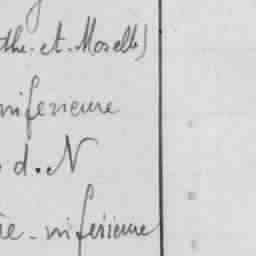 the-et-Moselle)
inférieure
d. N
re-inférieure